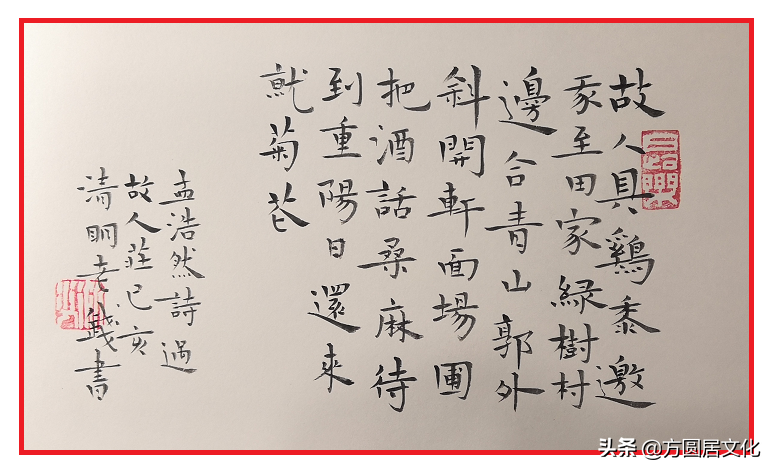 故人具鷄黍邀
我至田家緑樹村
邊合青山郭外
斜開軒面場圃
把酒話桑麻待
到重陽日還来
就菊花
孟浩然詩過
故人莊己亥
清明老書
头条 @方圆居文化